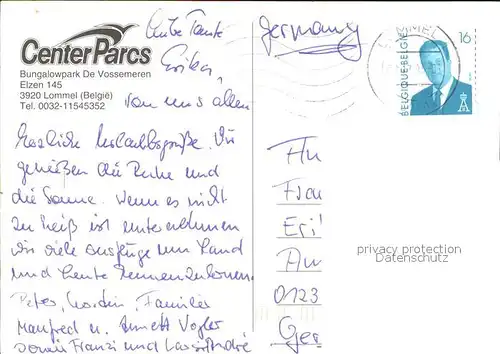 Center Parcs
Bungalowpark De Vossemeren
Elzen 145
3920 Lommel (België)
Tel. 0032-11545352
Liebe Tante
Erika,
von uns allen
Herzliche Urlaubsgrüße. Wir
genießen die Ruhe und
die Sonne. Wenn es nicht
zu heiß ist unternehmen
wir viele Ausflüge um Land
und Leute kennenzulernen.
Peter, Familie
Manfred u. Annett Vogler
sowie Franzi und
Germany
LOMMEL
16
BELGIQUE-BELGIË
An
Frau
Eri
Am
0123
Ger
privacy protection
Datenschutz